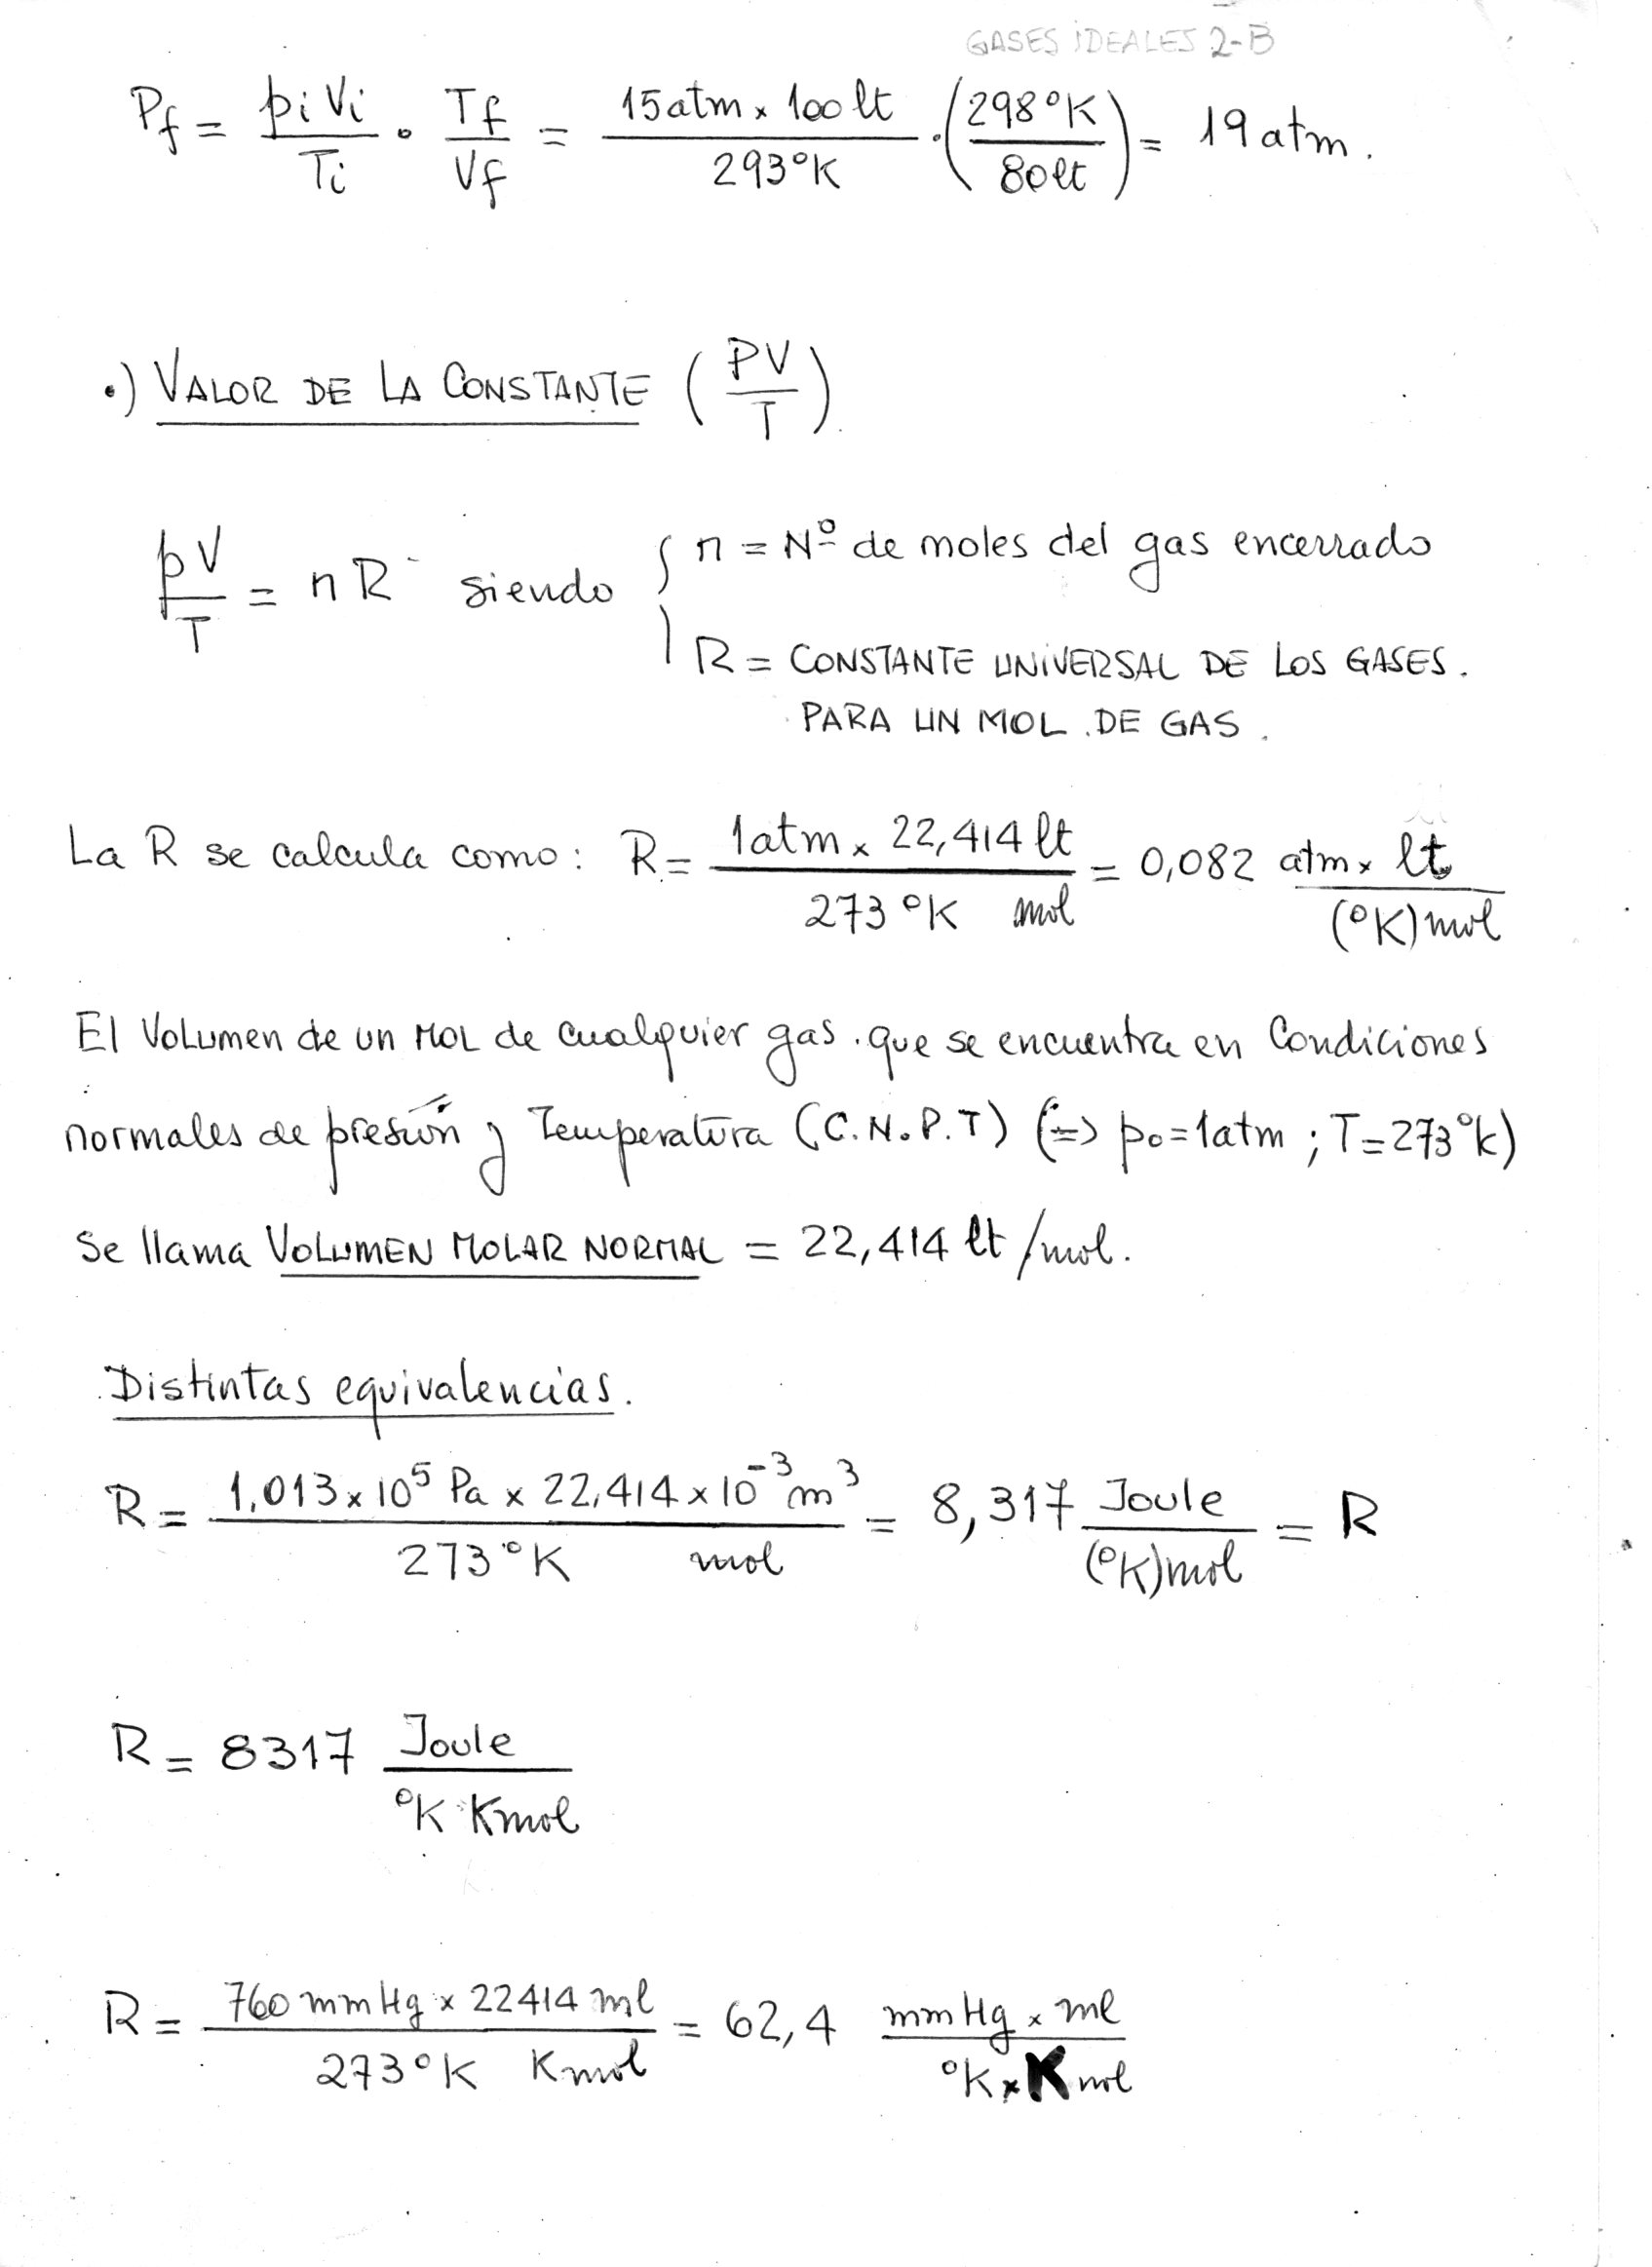 GASES IDEALES 2-B
Pf = pi Vi / Ti · Tf / Vf = 15 atm x 100 lt / 293°K · (298°K / 80 lt) = 19 atm.
•) VALOR DE LA CONSTANTE (PV / T)
pV / T = n R siendo { n = Nº de moles del gas encerrado
R = CONSTANTE UNIVERSAL DE LOS GASES.
PARA UN MOL DE GAS.
La R se calcula como: R = 1 atm x 22,414 lt / 273 °K mol = 0,082 atm x lt / (°K) mol
El Volumen de un MOL de cualquier gas que se encuentra en Condiciones
normales de presión y Temperatura (C.N.P.T) (=> po = 1 atm ; T = 273°K)
se llama VOLUMEN MOLAR NORMAL = 22,414 lt / mol.
Distintas equivalencias.
R = 1,013 x 10⁵ Pa x 22,414 x 10⁻³ m³ / 273 °K mol = 8,317 Joule / (°K) mol = R
R = 8317 Joule / °K Kmol
R = 760 mm Hg x 22414 ml / 273°K Kmol = 62,4 mm Hg x ml / °K x Kmol